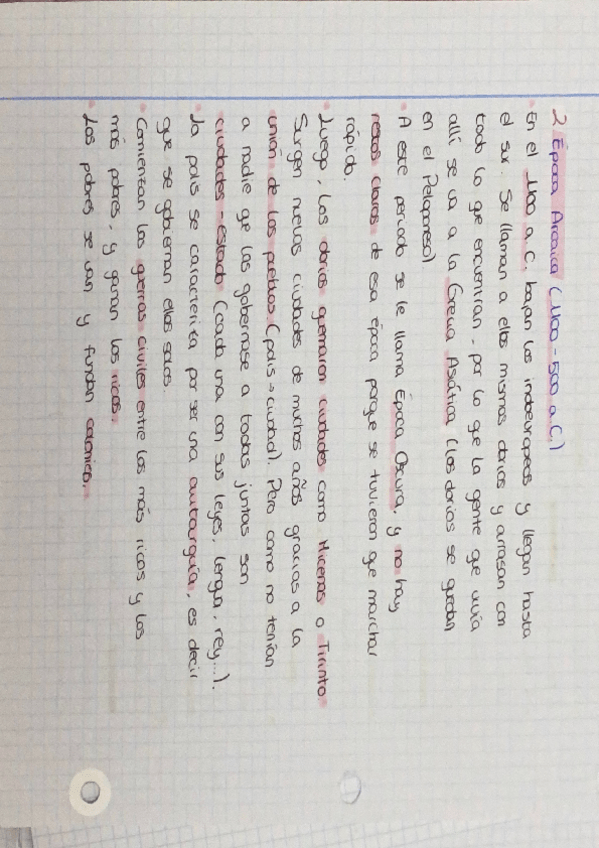 2 Época Arcaica (1100 - 500 a.C.)
· En el 1100 a.C. bajan los indoeuropeos y llegan hasta
el sur. Se llaman a ellos mismos dorios y arrasan con
todo lo que encuentran, por lo que la gente que vivía
allí se va a la Grecia Asiática (los dorios se quedan
en el Peloponeso)
· A este período se le llama Época Oscura, y no hay
restos claros de esa época porque se tuvieron que marchar
rápido.
· Luego, los dorios quemaron ciudades como Micenas o Tirinto
Surgen nuevas ciudades de muchos años gracias a la
unión de los pueblos (polis → ciudad). Pero como no tenían
a nadie que las gobernase a todas juntas son
ciudades-estado (cada una con sus leyes, lengua, rey...).
· La polis se caracteriza por ser una autarquía, es decir
que se gobiernan ellos solos.
· Comienzan las guerras civiles entre los más ricos y los
más pobres, y ganan los ricos.
· Los pobres se van y fundan colonias.